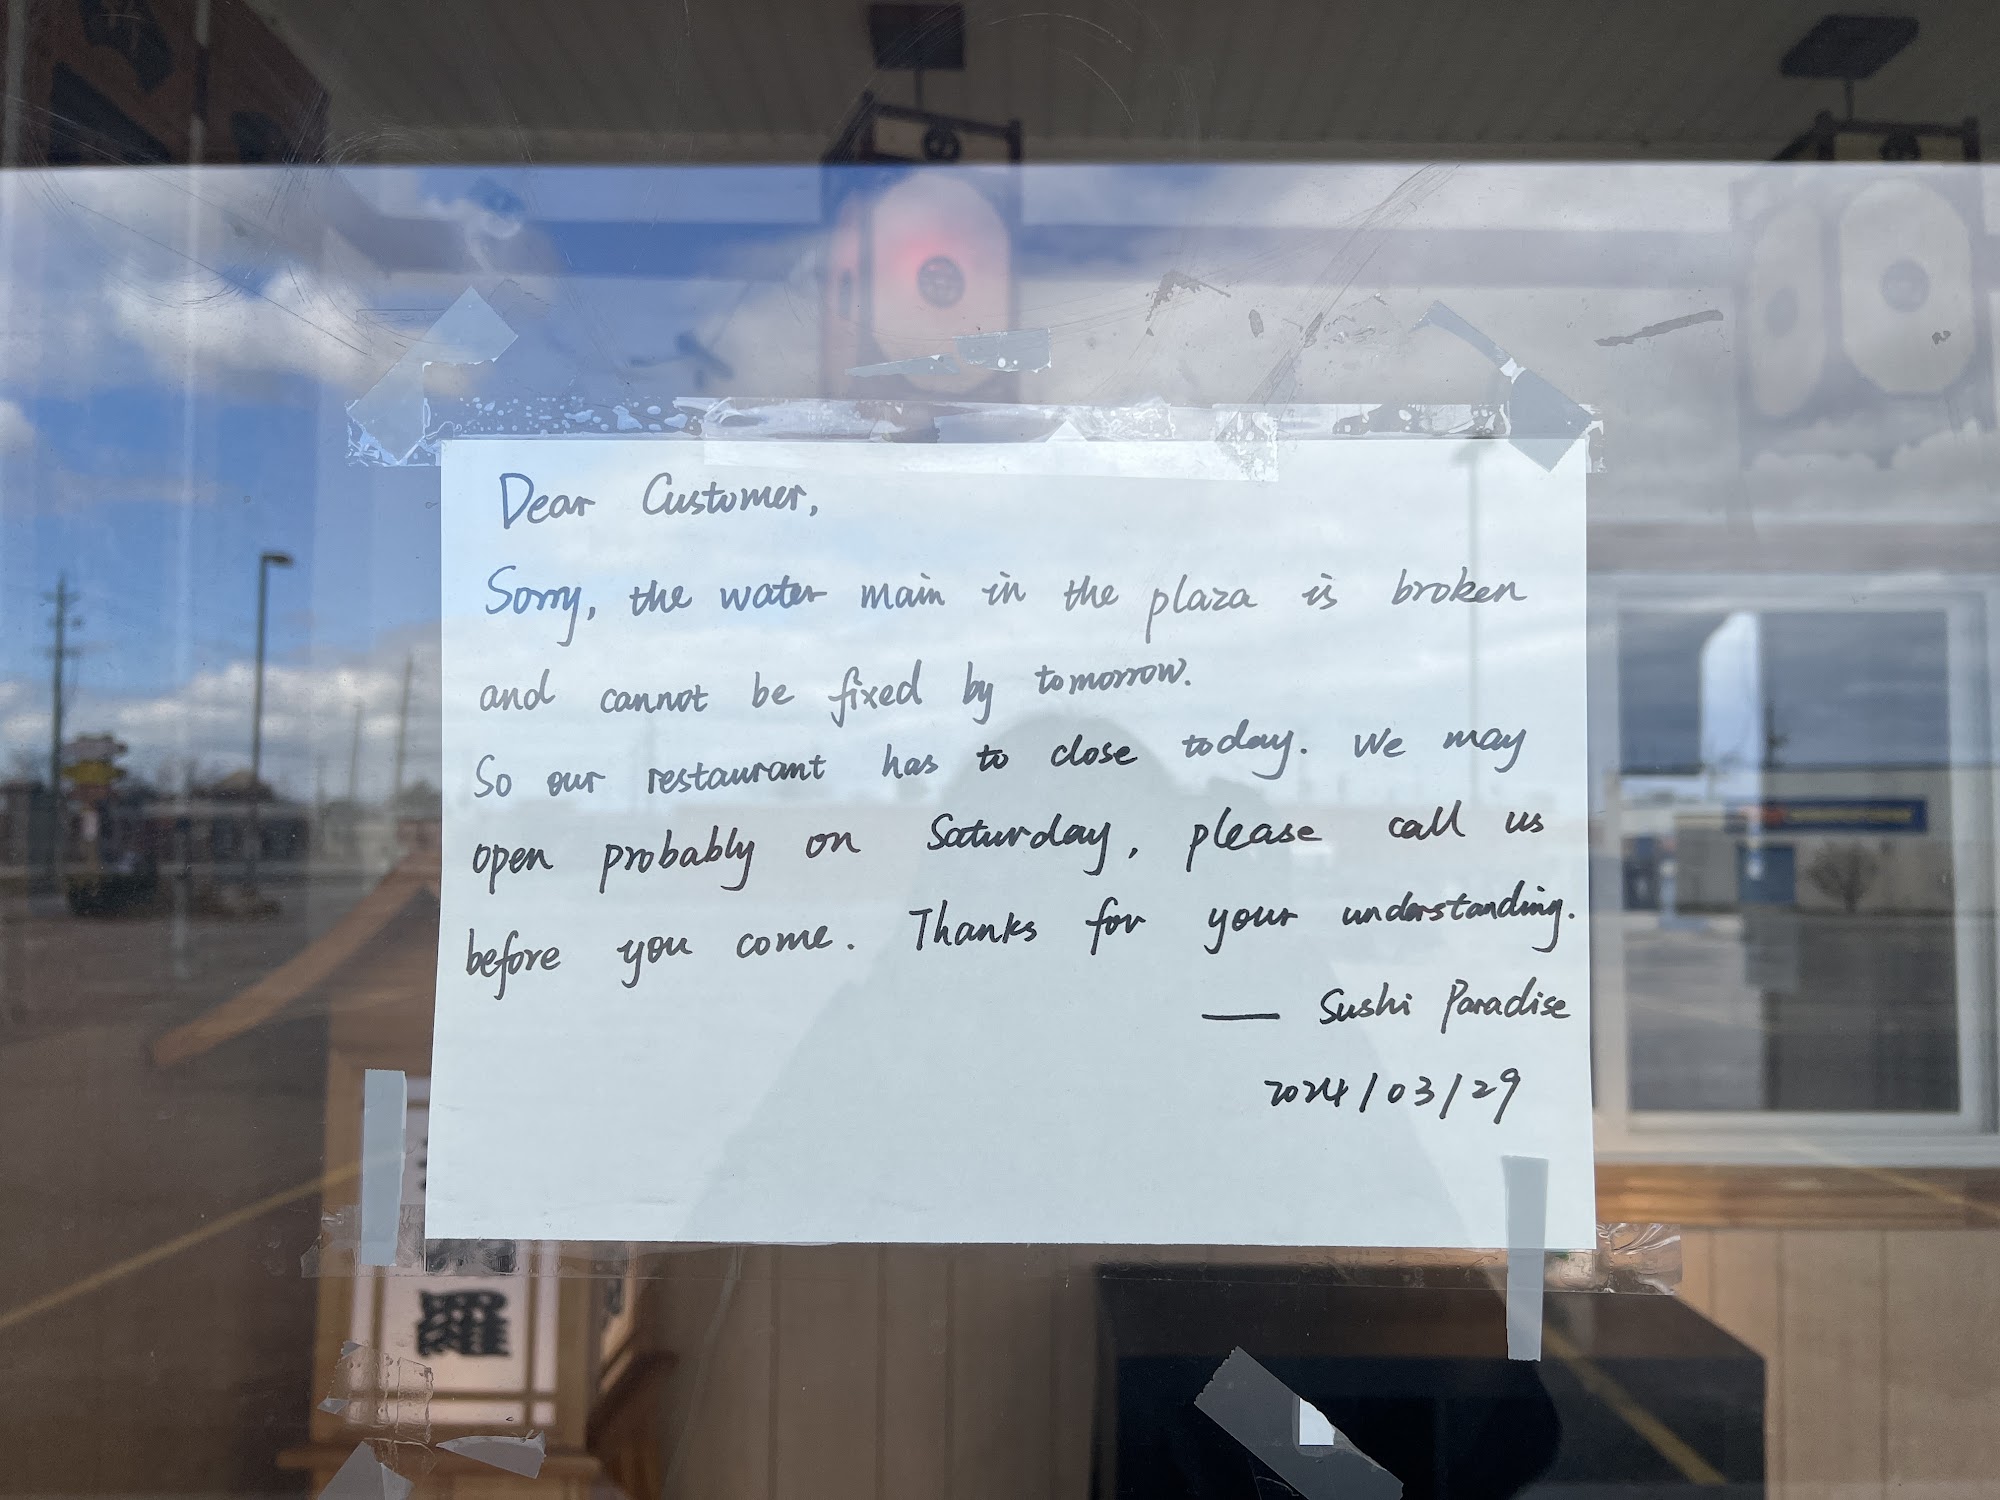 Dear Customer,
Sorry, the water main in the plaza is broken
and cannot be fixed by tomorrow.
So our restaurant has to close today. We may
open probably on Saturday, please call us
before you come. Thanks for your understanding.
— Sushi Paradise
2024/03/29
羅